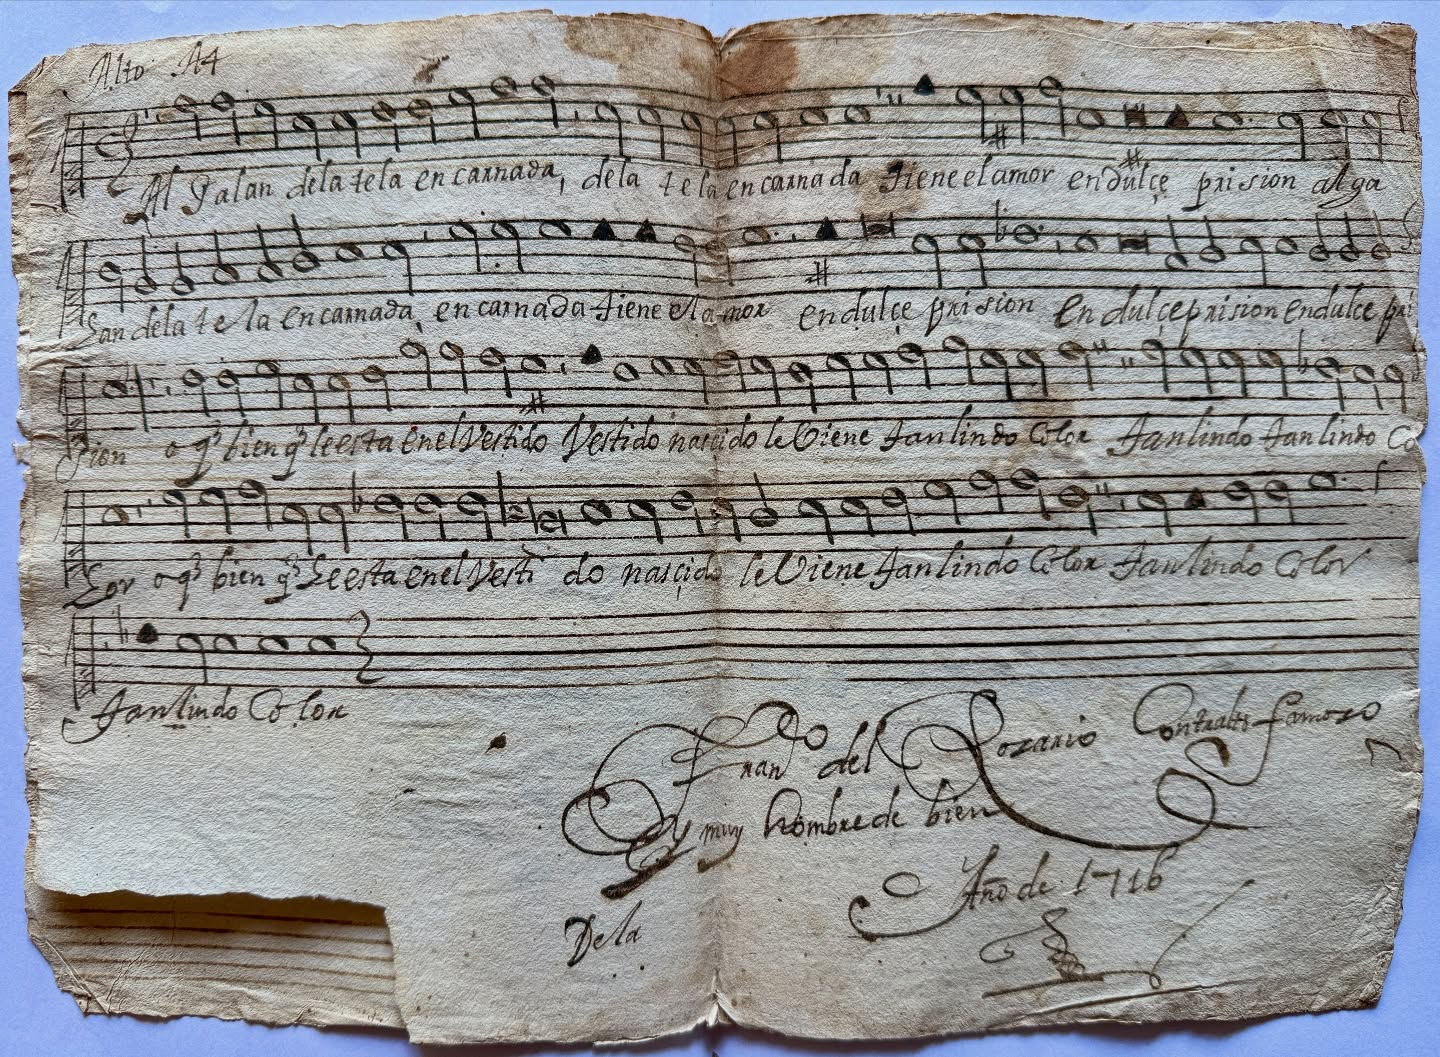 Alto A4
Al galan dela tela encarnada, dela tela encarnada tiene el amor en dulçe prision al ga
lan dela tela encarnada, encarnada tiene el amor en dulçe prision en dulçe prision en dulce pri
sion o q̃ bien q̃ le esta en el Vestido Vestido nasçido le Viene tan lindo Color tan lindo tan lindo Co
lor o q̃ bien q̃ le esta en el Vesti do nasçido le Viene tan lindo Color tan lindo Color
tan lindo Color
Fran.do del Rozario Contralto famozo
y muy hombre de bien
Año de 1716
Dela